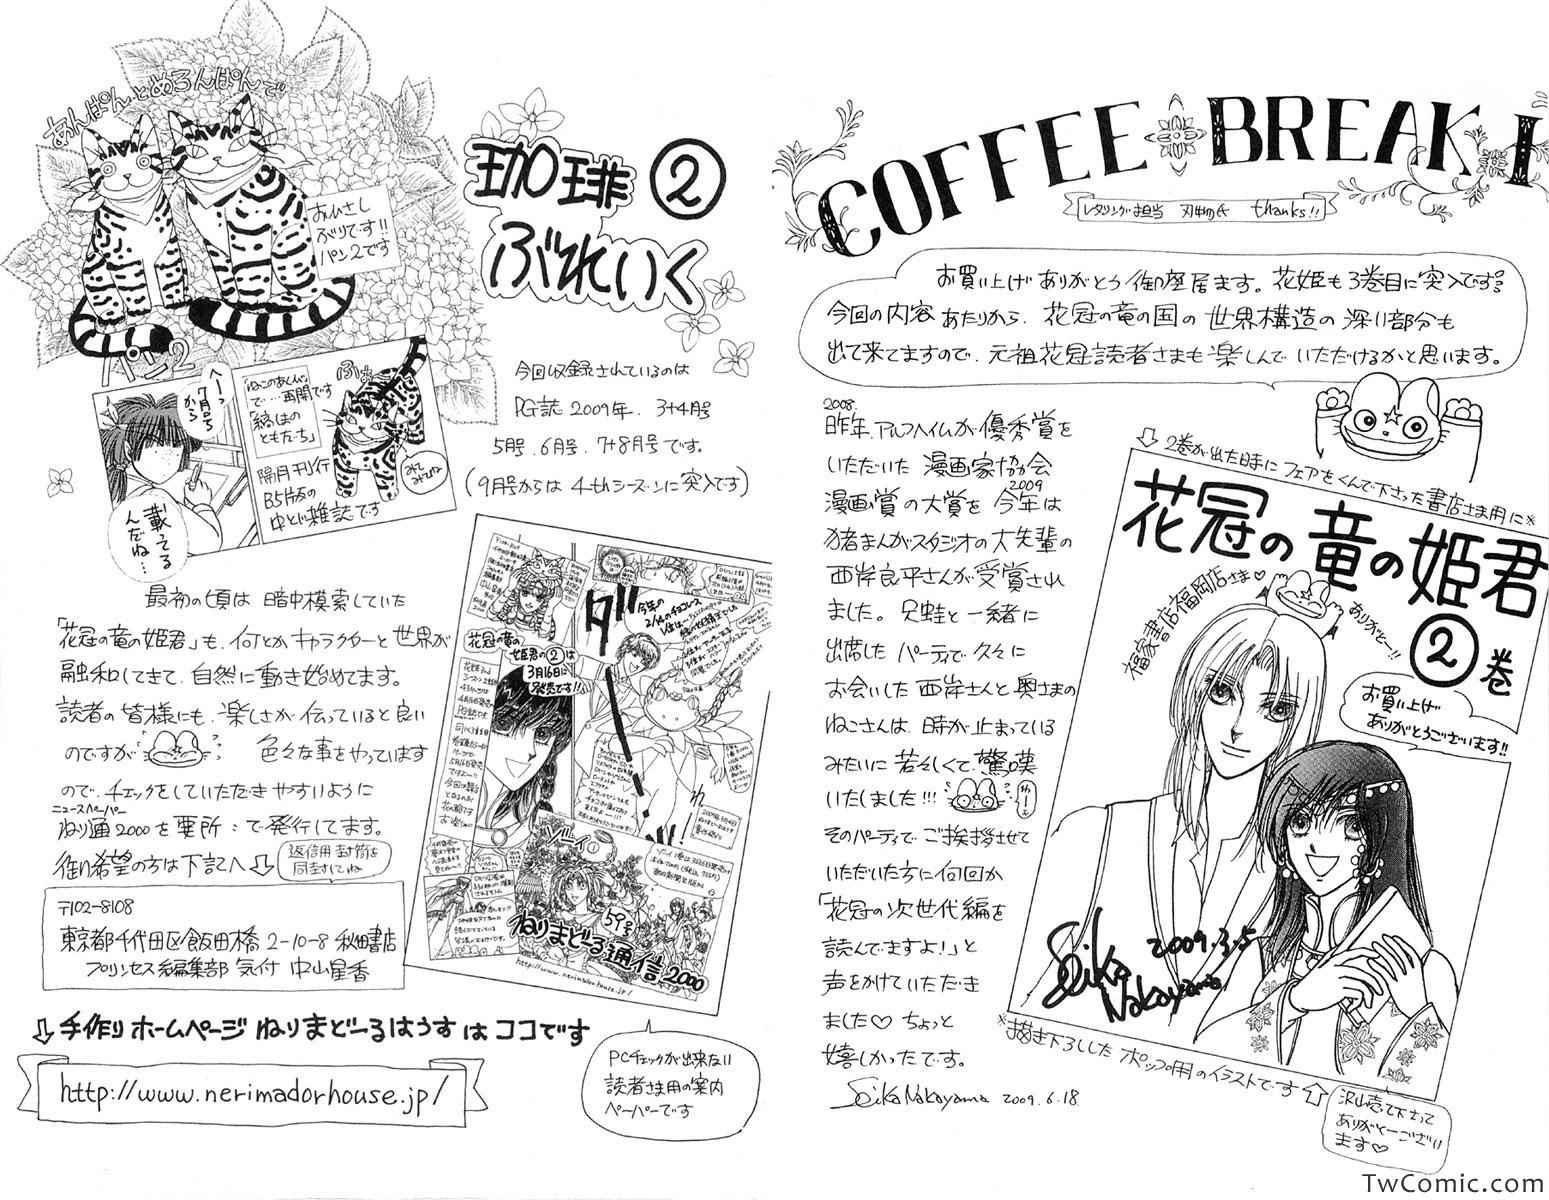 COFFEE BREAK 1
レタリング担当 刃物氏 thanks!!
お買い上げありがとう御座居ます。花姫も3巻目に突入です。
今回の内容あたりから、花冠の竜の国の世界構造の深い部分も
出て来てますので、元祖花冠読者さまも楽しんでいただけるかと思います。
2008.
昨年、アルフヘイムが優秀賞を
いただいた漫画家協会
2009
漫画賞の大賞を今年は
猪まんがスタジオの大先輩の
西岸良平さんが受賞され
ました。兄蛙と一緒に
出席したパーティで久々に
お会いした西岸さんと奥さまの
ねこさんは、時が止まっている
みたいに若々しくて、驚嘆
いたしました!!!
わーっ
そのパーティでご挨拶させて
いただいた方に何回か
「花冠の次世代編を
読んでますよ!」と
声をかけていただき
ました♡ ちょっと
嬉しかったです。
Seika Nakayama 2009.6.18.
2巻が出た時にフェアをくんで下さった書店さま用に※
花冠の竜の姫君
②巻
福家書店福岡店さま♡
ありがとー!!
お買い上げ
ありがとうございます!!
Seika
Nakayama
2009.3.5
※描き下ろしした ポップ用のイラストです
沢山売って下さって
ありがとーござい
ます♡
あんぱんとめろんぱんで
おひさし
ぶりです!!
パン2です
パン2
珈琲 ②
ぶれいく
へーっ
7月号
から
載ってる
んだね…
「ねこのあくび」
で…再開です
「縞はの
ともだち」
ふぁ
隔月刊行
B5版の
中とじ雑誌です
みて
みてね
今回収録されているのは
PG誌 2009年、3+4月号
5月号、6月号、7+8月号です。
(9月号からは 4thシーズンに突入です)
最初の頃は 暗中模索していた
「花冠の竜の姫君」も、何とかキャラクターと世界が
融和してきて、自然に動き始めてます。
読者の皆様にも、楽しさが伝っていると良い
のですが 色々な事をやっています
ので、チェックをしていただきやすいように
ニュースペーパー
ねり通2000を要所:で発行してます。
御希望の方は下記へ⇩
返信用封筒を
同封してね
〒102-8108
東京都千代田区飯田橋 2-10-8 秋田書店
プリンセス編集部 気付 中山星香
⇩手作りホームページ ねりまどーるはうす は ココです
http://www.nerimadorhouse.jp/
花冠の竜の
姫君の②は
3月16日に
発売です!!
ダーー
ゾーイ①
59号
ねりまどーる通信2000
http://www.nerimadorhouse.jp/
PCチェックが出来ない
読者さま用の案内
ペーパーです
TwComic.com